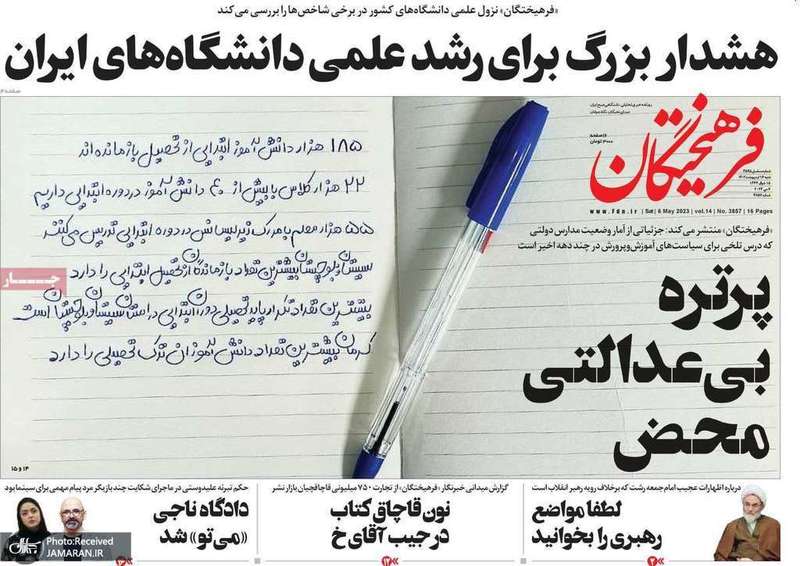 «فرهیختگان» نزول علمی دانشگاه‌های کشور در برخی شاخص‌ها را بررسی می‌کند
هشدار بزرگ برای رشد علمی دانشگاه‌های ایران
فرهیختگان
۱۶صفحه
۳۰۰۰ تومان
www.fdn.ir | Sat | 6 May 2023 | vol.14 | No. 3857 | 16 Pages
«فرهیختگان» منتشر می‌کند: جزئیاتی از آمار وضعیت مدارس دولتی
که درس تلخی برای سیاست‌های آموزش‌وپرورش در چند دهه اخیر است
پرتره
بی‌عدالتی
محض
۱۸۵ هزار دانش آموز ابتدایی از تحصیل بازمانده‌اند
۲۲ هزار کلاس با بیش از ۴۰ دانش آموز در دوره ابتدایی داریم
۵۵ هزار معلم با مدرک زیر لیسانس در دوره ابتدایی تدریس می‌کنند
سیستان و بلوچستان بیشترین تعداد بازماندگان از تحصیل ابتدایی را دارد
بیشترین تعداد تکرار پایه تحصیلی دوره ابتدایی در استان سیستان و بلوچستان است
کرمان بیشترین تعداد دانش آموزان ترک تحصیلی را دارد
۱۴ و ۱۵
جـــار
درباره اظهارات عجیب امام جمعه رشت که برخلاف رویه رهبر انقلاب است
لطفا مواضع
رهبری را بخوانید
۲
گزارش میدانی خبرنگار «فرهیختگان» از تجارت ۷۵۰ میلیونی قاچاقچیان بازار نشر
نون قاچاق کتاب
در جیب آقای خ
۱۲
حکم تبرئه علیدوستی در ماجرای شکایت چند بازیگر مرد پیام مهمی برای سینما بود
دادگاه ناجی
«می‌تو» شد
Photo:Received
JAMARAN.IR